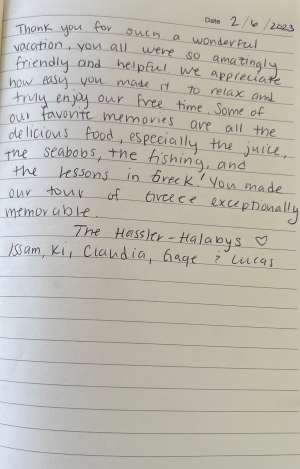 Date 2/6/2023
Thank you for such a wonderful
vacation, you all were so amazingly
friendly and helpful. We appreciate
how easy you made it to relax and
truly enjoy our free time. Some of
our favorite memories are all the
delicious food, especially the juice,
the seabobs, the fishing, and
the lessons in Greek! You made
our tour of Greece exceptionally
memorable.
The Hessler-Halabys ♡
Issam, Ki, Claudia, Gage & Lucas